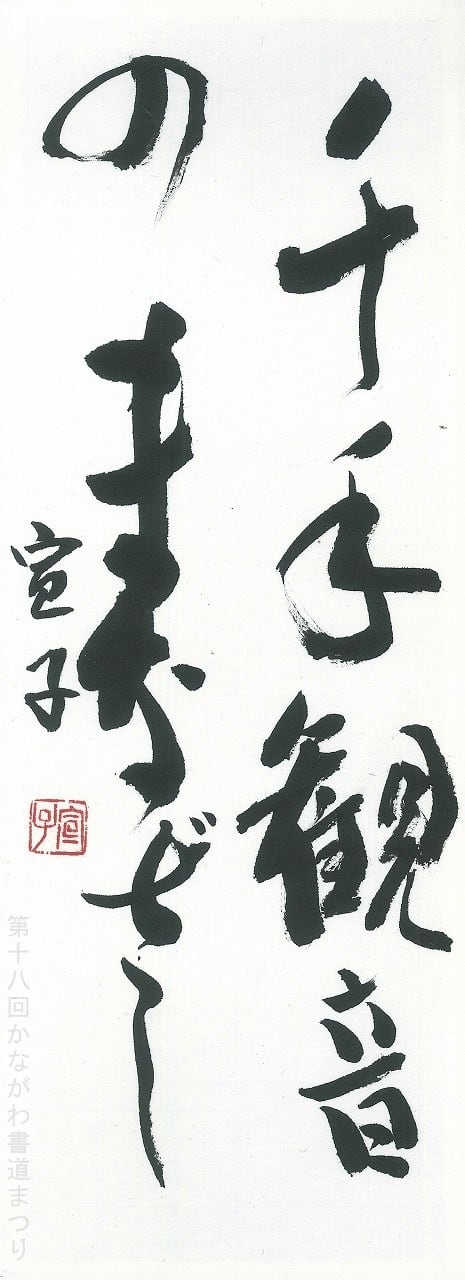 千手観音
のまなざし
宣子
宣子
第十八回かながわ書道まつり